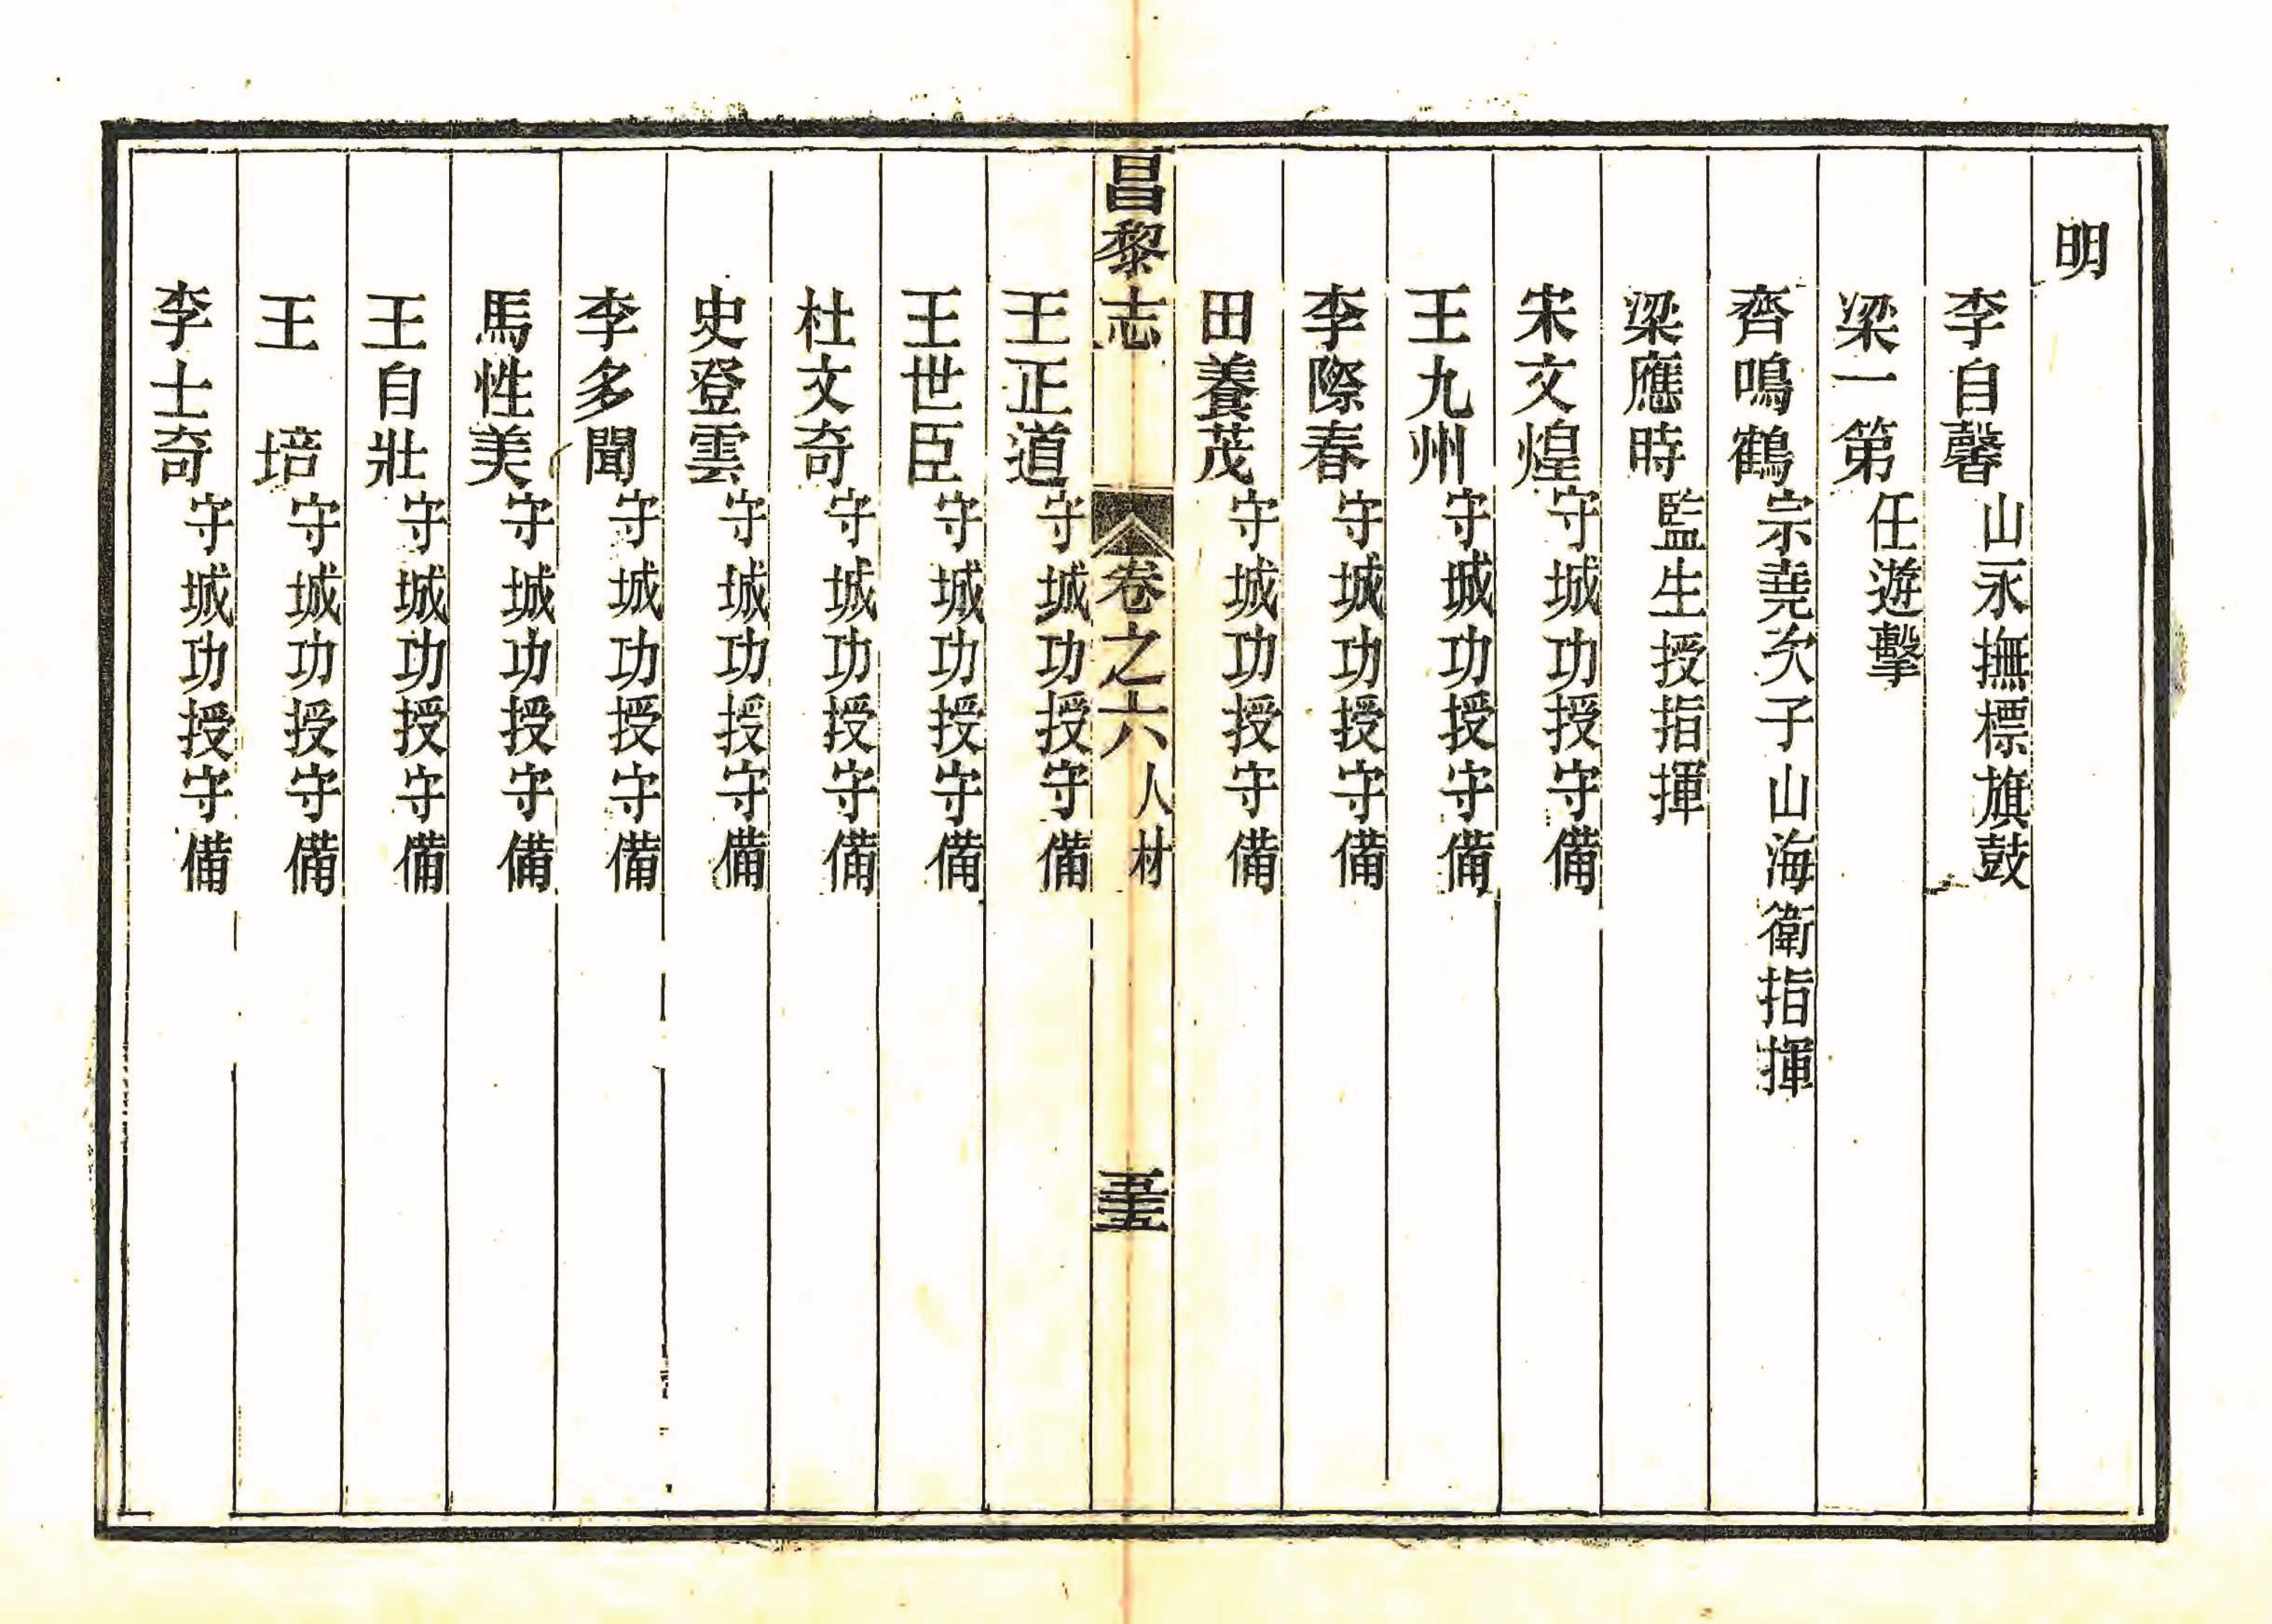 明
李自馨 山永撫標旗鼓
梁一第 任遊擊
齊鳴鶴 宗堯次子山海衛指揮
梁應時 監生授指揮
宋文煌 守城功授守備
王九州 守城功授守備
李際春 守城功授守備
田養茂 守城功授守備
昌黎志 卷之六 人材
王正道 守城功授守備
王世臣 守城功授守備
杜文奇 守城功授守備
史登雲 守城功授守備
李多聞 守城功授守備
馬性美 守城功授守備
王自壯 守城功授守備
王 培 守城功授守備
李士奇 守城功授守備